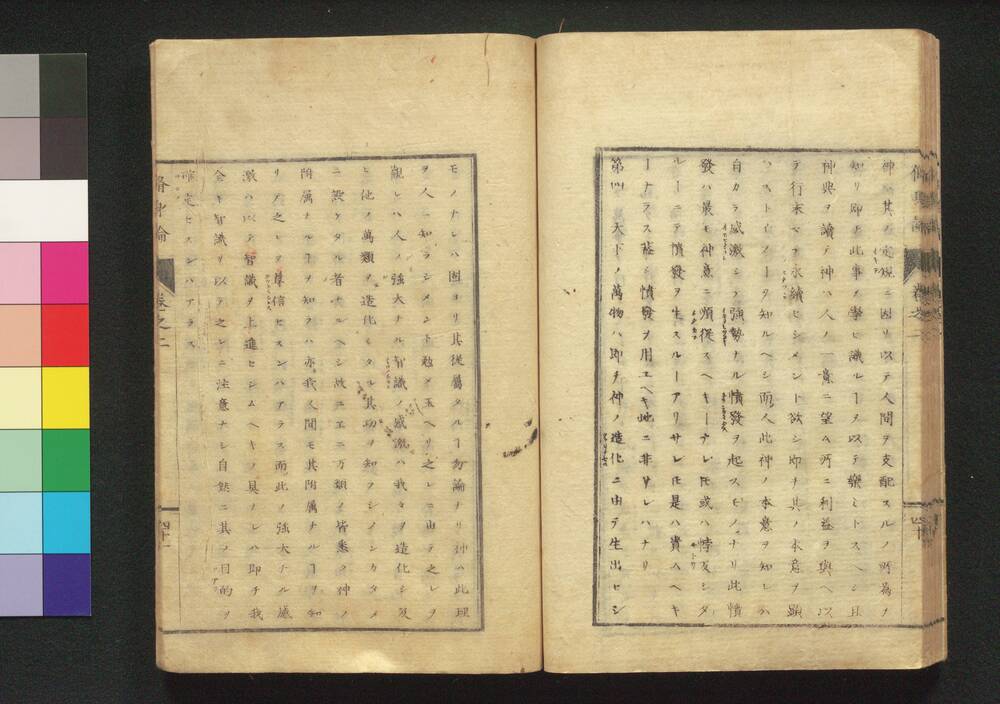 神ハ其ノ定規ニ因リ以テ人間ヲ支配スルノ所為ヲ
知リ即チ此事ヲ學ヒ識ルヿヲ以テ樂ミトスヘシ且
神典ヲ讀テ神ハ人ノ一意ニ望ム所ニ利益ヲ與ヘ以
テ行末マテ永續セシメント欲シ即チ其ノ本意ヲ顕
ハストイノヿヲ知ルヘシ而人此神ノ本意ヲ知レハ
自カラ感激シテ強勢ナル憤發ヲ起スモノナリ此憤
發ハ最モ神意ニ順從スヘキヿナレ𪜈或ハ悖反シタ
ルヿニテ憤發ヲ生スルヿアリサレ𪜈是ハ貴ハヘキ
ヿナラス蓋シ憤發ヲ用ユヘキ地ニ非サレハナリ
第四 天下ノ萬物ハ即チ神ノ造化ニ由テ生出セシ
脩身論 卷之二 四十
モノナレハ固ヨリ其從屬タルヿ勿論ナリ神ハ此理
ヲ人ニ知ラシメント勉メ玉ヘリ之レニ由テ之レヲ
觀レハ人ノ強大ナル智識ノ感激ハ我々ヲ造化シ及
ヒ他ノ萬類ヲ造化シタル其功ヲ知ラシメンカタメ
ニ設ケタル者ナルヘシ故ニエニ万類ノ皆悉ク神ノ
附屬ナルヿヲ知ラハ亦我人間モ其附属ナルヿヲ知
リテ之レヲ尊信セスンハアラス而此ノ強大ナル感
激ハ以テ智識ヲ上進セシムヘキノ具ナレハ即チ我
全キ智識リ以テ之レニ注意ナシ自然ニ其ノ目的ヲ
確定セスンハアラス
脩身論 卷之二 四十一